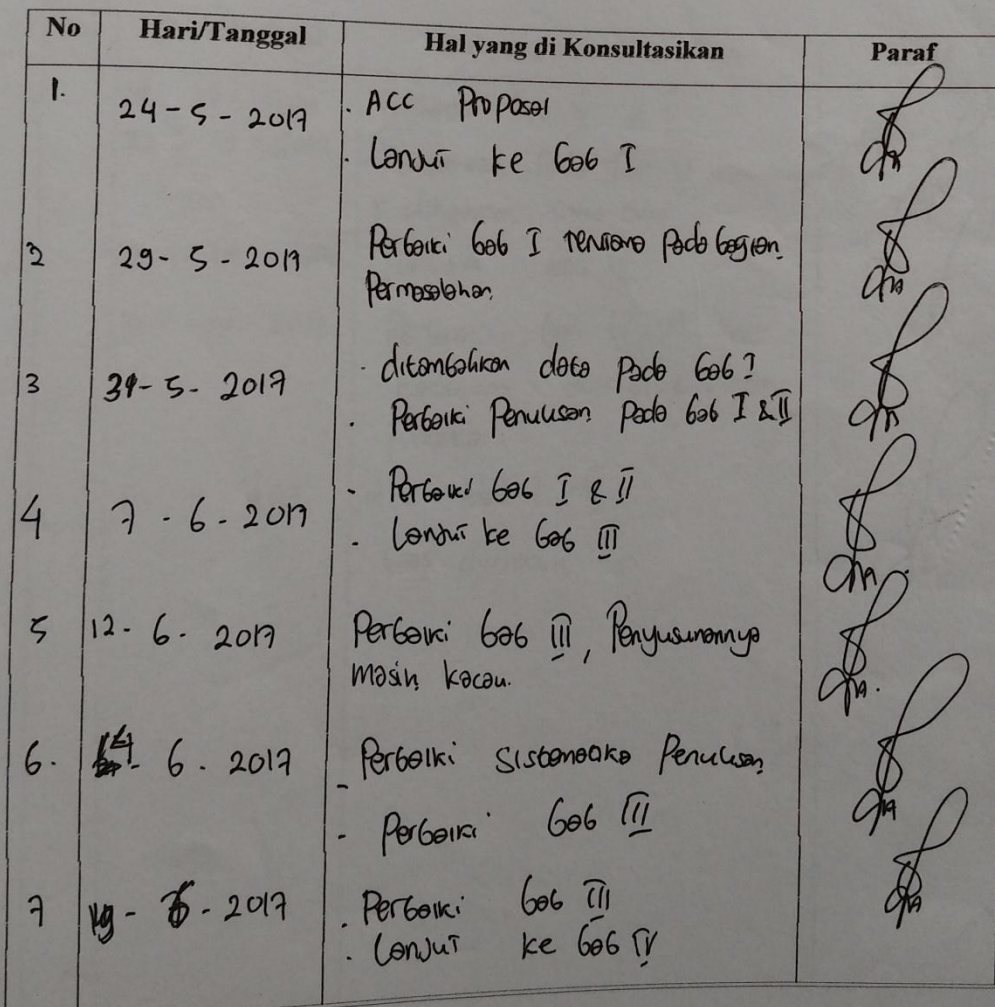 No Hari/Tanggal Hal yang di Konsultasikan Paraf
1. 24-5-2017 . ACC Proposal
. Lanjut ke bab I
2 29-5-2017 Perbaiki bab I terutama pada bagian
Permasalahan
3 31-5-2017 - ditambahkan data pada bab I
. Perbaiki Penulisan pada bab I & II
4 7-6-2017 - Perbaiki bab I & II
- Lanjut ke bab III
5 12-6-2017 Perbaiki bab III, Penyusunannya
masih kacau.
6. 14-6-2017 - Perbaiki Sistematika Penulisan
- Perbaiki bab III
7 19-6-2017 . Perbaiki bab III
. Lanjut ke bab IV